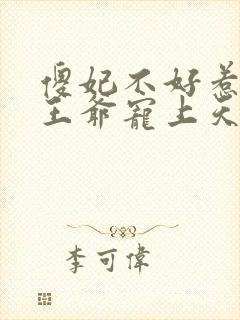 傻妃不好惹
王爺寵上天
李可偉